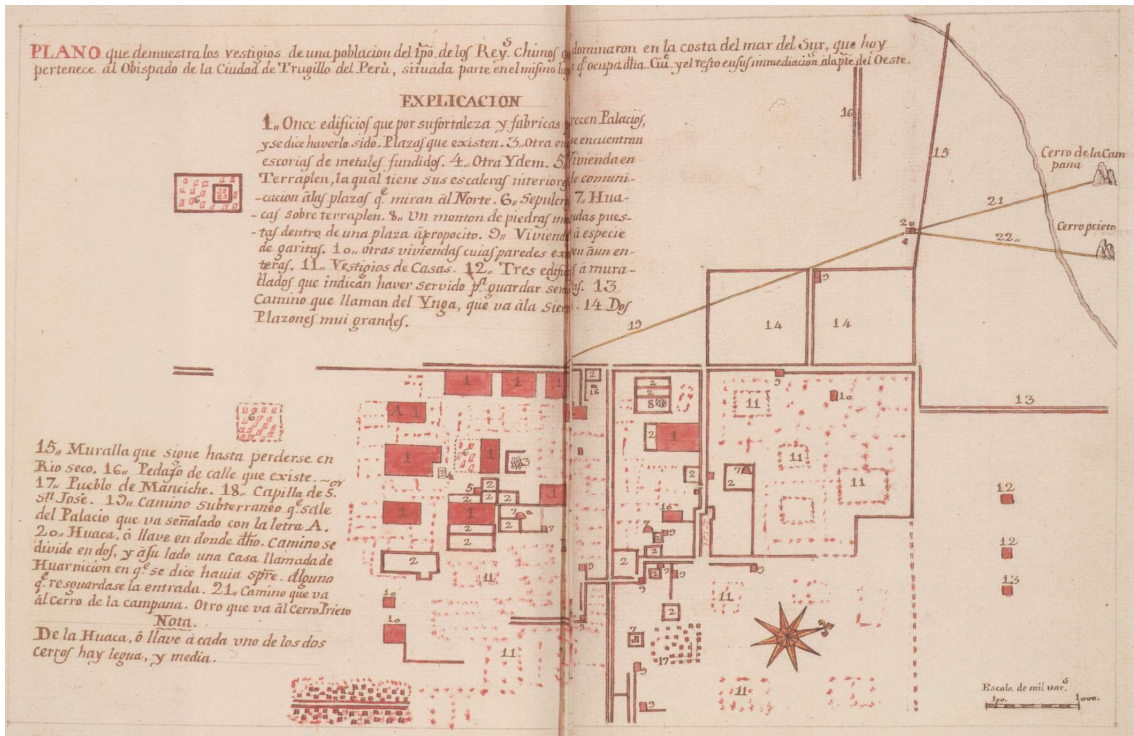 PLANO que demuestra los vestigios de una poblacion del tpõ. de los Rey.s Chimos q. dominaron en la costa del mar del Sur, que hoy
pertenece al Obispado de la Ciudad de Trugillo del Perù, situada parte en el mismo q.e ocupa dha. Ciu.d y el resto en sus immediacion.s ala p.te del Oeste.
EXPLICACION
1,, Once edificios que por su fortaleza y fabricas Palacios,
y se dice haverlo sido. Plazas que existen. 3,, Otra en se encuentran
escorias de metales fundidos. 4,, Otra Ydem. 5 Vivienda en
Terraplen, la qual tiene sus escaleras interiores de comuni-
-cacion àlas plazas q.e miran àl Norte. 6,, Sepulcro 7,, Hua-
-cas sobre terraplen. 8,, Un monton de piedras pues-
-tas dentro de una plaza àpropocito. 9,, Viviend à especie
de garitas. 10,, otras viviendas cuias paredes àun en-
teras. 11,, Vestigios de Casas. 12,, Tres à mura-
llados que indican haver servido p.a guardar 13
Camino que llaman del Ynga, que va àla 14. Dos
Plazones mui grandes.
15,, Muralla que sigue hasta perderse en
Rio seco. 16,, Pedazo de calle que existe.
17,, Pueblo de Mànsiche. 18,, Capilla de S.or
S.n Josè. 19,, Camino subterraneo q.e sale
del Palacio que va señalado con la letra A.
20,, Huaca, ò llave en donde dho. Camino se
divide en dos, y àsu lado una Casa llamada de
Huarnicion en q.e se dice hauia spre. Alguno
q.e resguardase la entrada. 21,, Camino que va
àl cerro de la campana. Otro que va àl Cerro Prieto
Nota.
De la Huaca, ò llave à cada uno de los dos
cerros hay legua, y media.
16
15
Cerro de la Cam
pana
21
20
22,,
Cerro prieto
19
14
14
13
12
12
13
Escala de mil var.s
100.
1000.